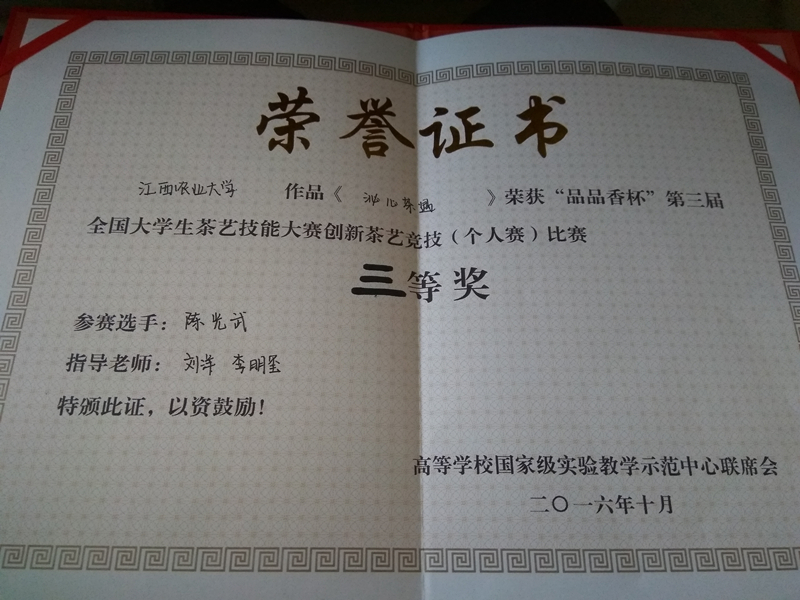 荣誉证书
江西农业大学 作品《沁心茶遇》荣获“品品香杯”第三届
全国大学生茶艺技能大赛创新茶艺竞技（个人赛）比赛
三等奖
参赛选手：陈光武
指导老师：刘洋 李明玺
特颁此证，以资鼓励！
高等学校国家级实验教学示范中心联席会
二〇一六年十月